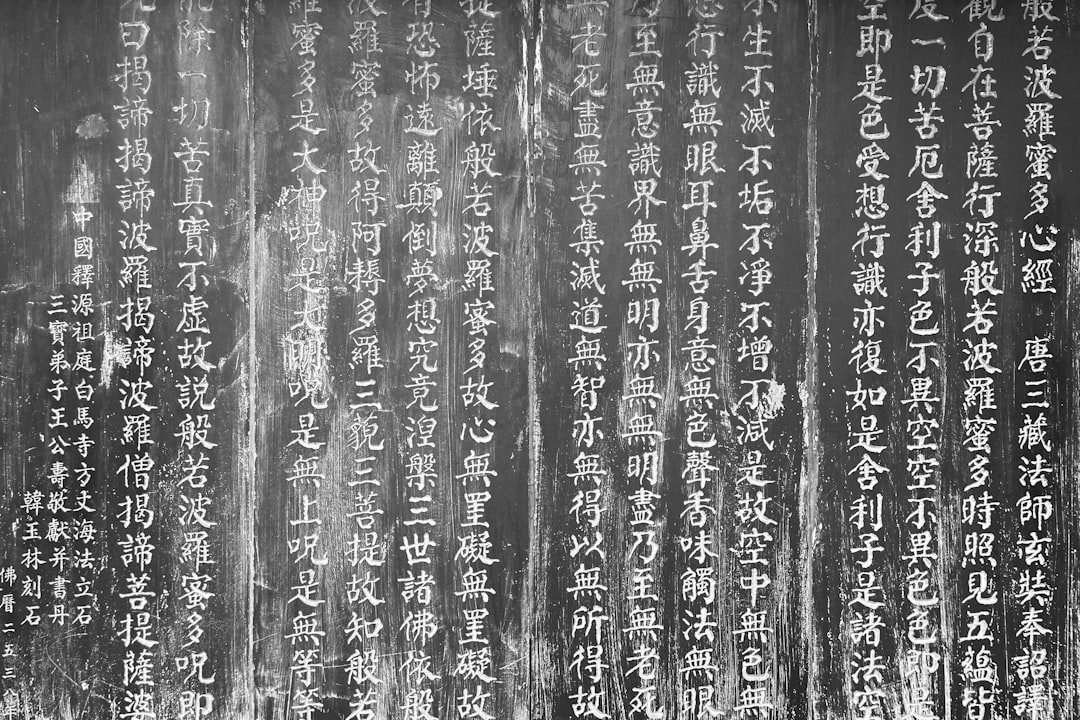 般若波羅蜜多心經　唐三藏法師玄奘奉詔譯
觀自在菩薩行深般若波羅蜜多時照見五蘊皆
度一切苦厄舍利子色不異空空不異色色即是
空即是色受想行識亦復如是舍利子是諸法空
不生不滅不垢不淨不增不減是故空中無色無
想行識無眼耳鼻舌身意無色聲香味觸法無眼
乃至無意識界無無明亦無無明盡乃至無老死
無老死盡無苦集滅道無智亦無得以無所得故
提薩埵依般若波羅蜜多故心無罣礙無罣礙故
有恐怖遠離顛倒夢想究竟涅槃三世諸佛依般
波羅蜜多故得阿耨多羅三藐三菩提故知般若
羅蜜多是大神呪是大明呪是無上呪是無等等
能除一切苦真實不虛故說般若波羅蜜多呪即
呪曰揭諦揭諦波羅揭諦波羅僧揭諦菩提薩婆
中國釋源祖庭白馬寺方丈海法立石
三寶弟子王公壽敬獻并書丹
韓玉林刻石
佛曆二五三八年